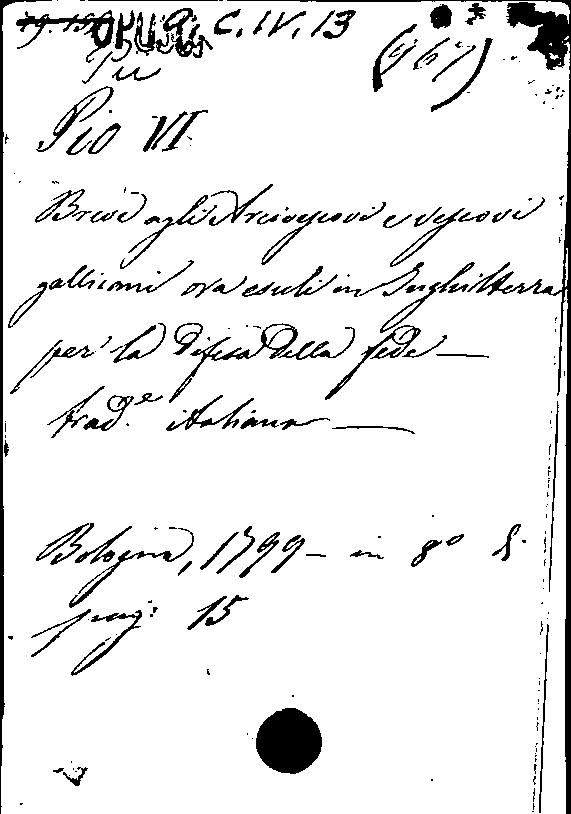 OPUSC. C.IV.13
(967)
Pio VI
Breve agli Arcivescovi e vescovi
gallicani ora esuli in Inghilterra
per la difesa della fede —
trad.e italiana —
Bologna, 1799 — in 8º di
pag: 15